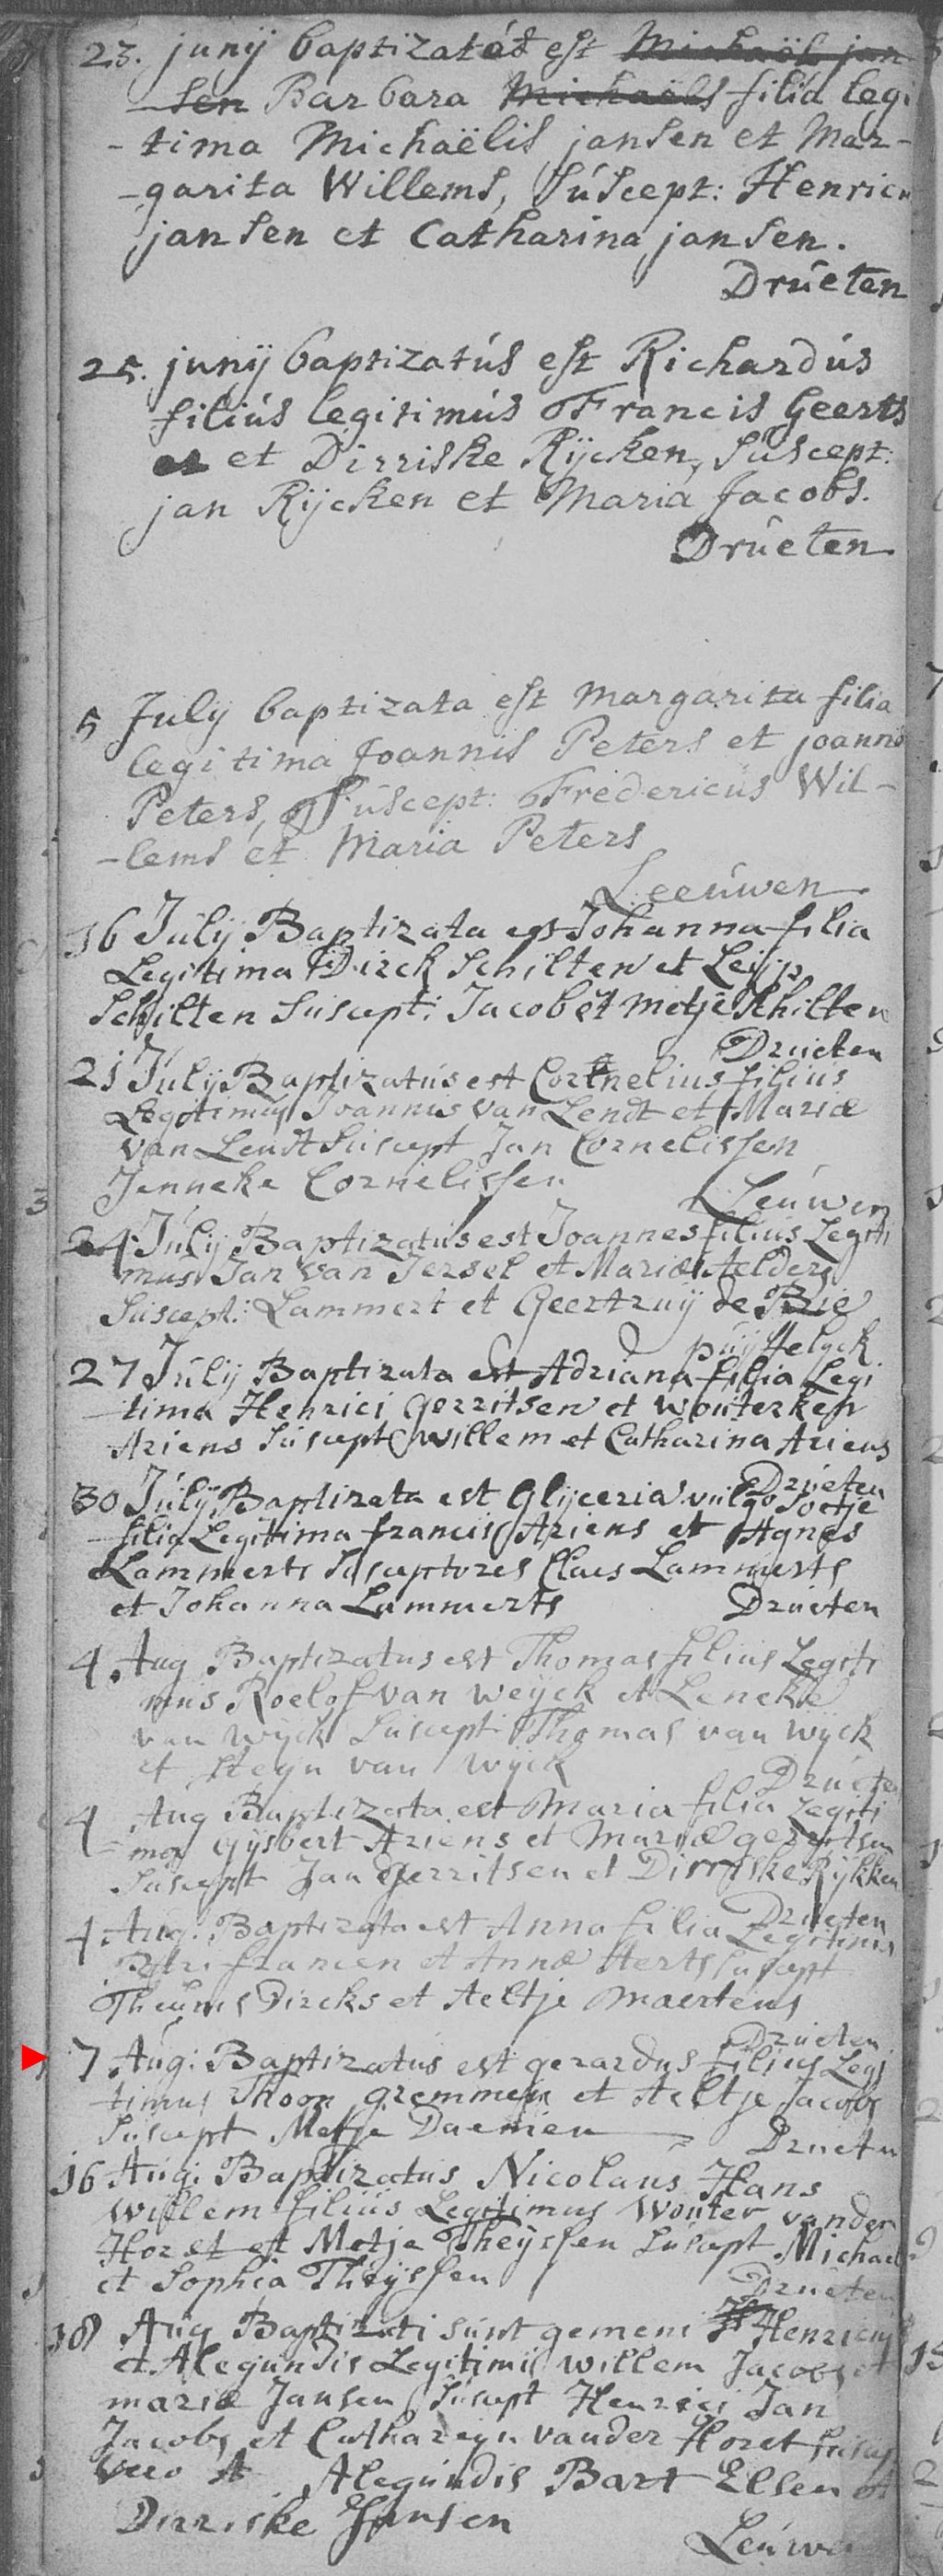 23. junij baptizata est Michaël jan
sen Barbara Michaëls filia legi
-tima Michaëlis jansen et Mar-
-garita Willems, Súscept: Henricu
jansen et Catharina jansen.
Drúeten
25. junij baptizatús est Richardús
filiús legitimús Francis Geerts
et Dirriske Rijcken, Súscept:
jan Rijcken et Maria Jacobs.
Drúeten
5 July baptizata est Margarita filia
legitima Joannis Peters et joanna
Peters, Súscept: Fredericús Wil-
-lems et Maria Peters
Leeúwen
16 Júlij Baptizata est Johanna filia
Legitima Dirck Schilten et Leijp
Schilten Súscept: Jacob et Metje Schilten
Drúeten
21 Júlij Baptizatús est Cornelius filius
Legitimus Joannis van Lendt et Mariæ
van Lendt Súscept Jan Cornelissen
Jenneke Cornelissen
Leúwen
24 Júlij Baptizatús est Joannes filius Legiti
mus Jan van Jersel et Mariæ Aelders
Súscept: Lammert et Geertruij de Brie
púyflelyck
27 Júlij Baptizata est Adriana filia Legi
tima Henrici Gerritsen et Wouterken
Ariens Súscept Willem et Catharina Ariens
Drúeten
30 Júlij Baptizata est Glijceria vulgo Soetje
filia Legitima Francis Ariens et Agnes
Lammerts Súsceptores Claes Lammerts
et Johanna Lammerts Drúeten
4 Aug Baptizatus est Thomas filius Legiti
mus Roelof van Weijck et Leneke
van Wijck Súscept Thomas van Wijck
et Steyn van Wijck
Drúeten
4 Aug Baptizata est Maria filia Legiti
ma Gijsbert Ariens et Mariæ Gerritsen
Súscept Jan Gerritsen et Dirriske Rijkken
Drúeten
4 Aug. Baptizata est Anna filia Legitima
Petri Francen et Annæ Aerts Súscept
Theunis Dircks et Aeltje Maertens
Drúeten
7 Aúg: Baptizatús est gerardus filius Legi
timus Thoon Gremmen et Aeltje Jacobs
Súscept Metje Daemen
Drueten
16 Aúg: Baptizatús Nicolaus Hans
Willem filiús Legitimus Wouter vander
Horst et Metje Theyssen Súscept Michael
et Sophia Theyssen
Drúeten
18 Aúg Baptizati súnt gemeni Henricus
et Alegundis Legitimi Willem Jacobs et
mariæ Jansen Súscept Henrici Jan
Jacobs et Cathareyn vander Horst Súscep
vero Alegúndis Bart Elsen et
Dirriske Jansen
Leúwen